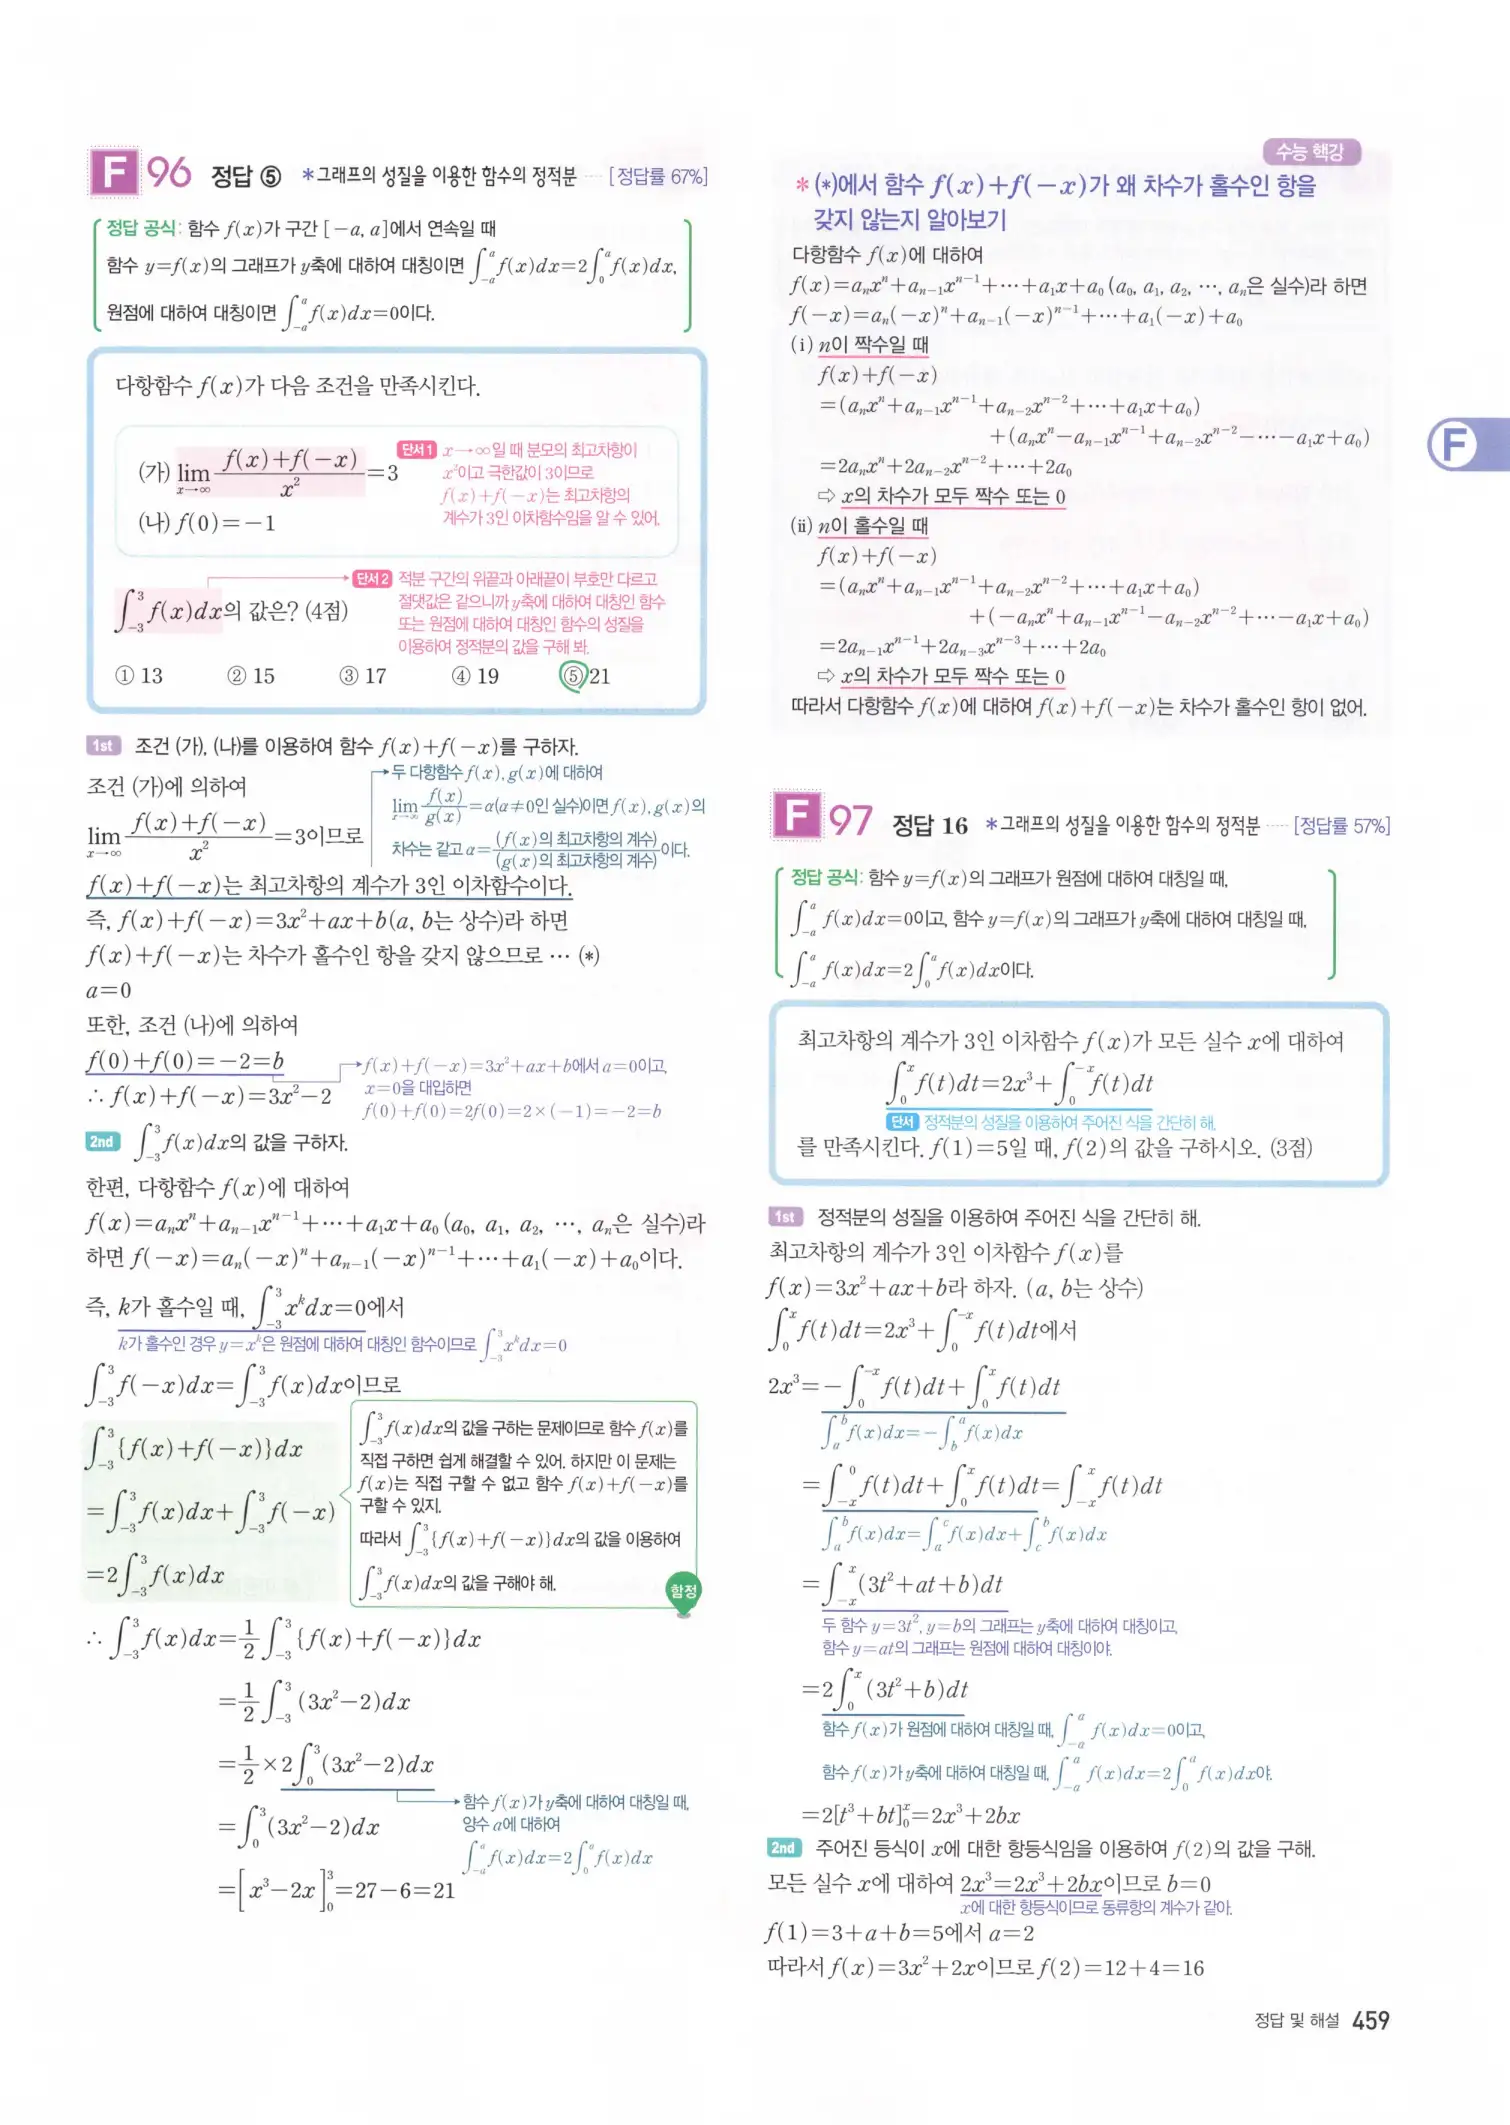 F 96 정답 ⑤ *그래프의 성질을 이용한 함수의 정적분 ···· [정답률 67%]
정답 공식: 함수 f(x)가 구간 [-a, a]에서 연속일 때
함수 y=f(x)의 그래프가 y축에 대하여 대칭이면 ∫_{-a}^{a} f(x)dx=2∫_{0}^{a} f(x)dx,
원점에 대하여 대칭이면 ∫_{-a}^{a} f(x)dx=0이다.
다항함수 f(x)가 다음 조건을 만족시킨다.
(가) lim_{x→∞} {f(x)+f(-x)}/x²=3
(나) f(0)=-1
단서1 x→∞일 때 분모의 최고차항이
x²이고 극한값이 3이므로
f(x)+f(-x)는 최고차항의
계수가 3인 이차함수임을 알 수 있어.
∫_{-3}^{3} f(x)dx의 값은? (4점)
단서2 적분 구간의 위끝과 아래끝이 부호만 다르고
절댓값은 같으니까 y축에 대하여 대칭인 함수
또는 원점에 대하여 대칭인 함수의 성질을
이용하여 정적분의 값을 구해 봐.
① 13 ② 15 ③ 17 ④ 19 ⑤ 21
1st 조건 (가), (나)를 이용하여 함수 f(x)+f(-x)를 구하자.
조건 (가)에 의하여
lim_{x→∞} {f(x)+f(-x)}/x²=3이므로
두 다항함수 f(x), g(x)에 대하여
lim_{x→∞} f(x)/g(x)=α(α≠0인 실수)이면 f(x), g(x)의
차수는 같고 α=(f(x)의 최고차항의 계수)/(g(x)의 최고차항의 계수)이다.
f(x)+f(-x)는 최고차항의 계수가 3인 이차함수이다.
즉, f(x)+f(-x)=3x²+ax+b(a, b는 상수)라 하면
f(x)+f(-x)는 차수가 홀수인 항을 갖지 않으므로 ··· (*)
a=0
또한, 조건 (나)에 의하여
f(0)+f(0)=-2=b
∴ f(x)+f(-x)=3x²-2
f(x)+f(-x)=3x²+ax+b에서 a=0이고,
x=0을 대입하면
f(0)+f(0)=2f(0)=2×(-1)=-2=b
2nd ∫_{-3}^{3} f(x)dx의 값을 구하자.
한편, 다항함수 f(x)에 대하여
f(x)=aₙxⁿ+aₙ₋₁xⁿ⁻¹+···+a₁x+a₀ (a₀, a₁, a₂, ···, aₙ은 실수)라
하면 f(-x)=aₙ(-x)ⁿ+aₙ₋₁(-x)ⁿ⁻¹+···+a₁(-x)+a₀이다.
즉, k가 홀수일 때, ∫_{-3}^{3} xᵏdx=0에서
k가 홀수인 경우 y=xᵏ은 원점에 대하여 대칭인 함수이므로 ∫_{-3}^{3} xᵏdx=0
∫_{-3}^{3} f(-x)dx=∫_{-3}^{3} f(x)dx이므로
∫_{-3}^{3} {f(x)+f(-x)}dx
=∫_{-3}^{3} f(x)dx+∫_{-3}^{3} f(-x)
=2∫_{-3}^{3} f(x)dx
∫_{-3}^{3} f(x)dx의 값을 구하는 문제이므로 함수 f(x)를
직접 구하면 쉽게 해결할 수 있어. 하지만 이 문제는
f(x)는 직접 구할 수 없고 함수 f(x)+f(-x)를
구할 수 있지.
따라서 ∫_{-3}^{3} {f(x)+f(-x)}dx의 값을 이용하여
∫_{-3}^{3} f(x)dx의 값을 구해야 해.
함정
∴ ∫_{-3}^{3} f(x)dx=1/2 ∫_{-3}^{3} {f(x)+f(-x)}dx
=1/2 ∫_{-3}^{3} (3x²-2)dx
=1/2×2∫_{0}^{3} (3x²-2)dx
=∫_{0}^{3} (3x²-2)dx
함수 f(x)가 y축에 대하여 대칭일 때,
양수 a에 대하여
∫_{-a}^{a} f(x)dx=2∫_{0}^{a} f(x)dx
=[x³-2x]_{0}^{3}=27-6=21
수능 핵강
* (*)에서 함수 f(x)+f(-x)가 왜 차수가 홀수인 항을
갖지 않는지 알아보기
다항함수 f(x)에 대하여
f(x)=aₙxⁿ+aₙ₋₁xⁿ⁻¹+···+a₁x+a₀ (a₀, a₁, a₂, ···, aₙ은 실수)라 하면
f(-x)=aₙ(-x)ⁿ+aₙ₋₁(-x)ⁿ⁻¹+···+a₁(-x)+a₀
(i) n이 짝수일 때
f(x)+f(-x)
=(aₙxⁿ+aₙ₋₁xⁿ⁻¹+aₙ₋₂xⁿ⁻²+···+a₁x+a₀)
+(aₙxⁿ-aₙ₋₁xⁿ⁻¹+aₙ₋₂xⁿ⁻²-···-a₁x+a₀)
=2aₙxⁿ+2aₙ₋₂xⁿ⁻²+···+2a₀
⇨ x의 차수가 모두 짝수 또는 0
(ii) n이 홀수일 때
f(x)+f(-x)
=(aₙxⁿ+aₙ₋₁xⁿ⁻¹+aₙ₋₂xⁿ⁻²+···+a₁x+a₀)
+(-aₙxⁿ+aₙ₋₁xⁿ⁻¹-aₙ₋₂xⁿ⁻²+···-a₁x+a₀)
=2aₙ₋₁xⁿ⁻¹+2aₙ₋₃xⁿ⁻³+···+2a₀
⇨ x의 차수가 모두 짝수 또는 0
따라서 다항함수 f(x)에 대하여 f(x)+f(-x)는 차수가 홀수인 항이 없어.
F
F 97 정답 16 *그래프의 성질을 이용한 함수의 정적분 ···· [정답률 57%]
정답 공식: 함수 y=f(x)의 그래프가 원점에 대하여 대칭일 때,
∫_{-a}^{a} f(x)dx=0이고, 함수 y=f(x)의 그래프가 y축에 대하여 대칭일 때,
∫_{-a}^{a} f(x)dx=2∫_{0}^{a} f(x)dx이다.
최고차항의 계수가 3인 이차함수 f(x)가 모든 실수 x에 대하여
∫_{0}^{x} f(t)dt=2x³+∫_{0}^{-x} f(t)dt
단서 정적분의 성질을 이용하여 주어진 식을 간단히 해.
를 만족시킨다. f(1)=5일 때, f(2)의 값을 구하시오. (3점)
1st 정적분의 성질을 이용하여 주어진 식을 간단히 해.
최고차항의 계수가 3인 이차함수 f(x)를
f(x)=3x²+ax+b라 하자. (a, b는 상수)
∫_{0}^{x} f(t)dt=2x³+∫_{0}^{-x} f(t)dt에서
2x³=-∫_{0}^{-x} f(t)dt+∫_{0}^{x} f(t)dt
∫_{a}^{b} f(x)dx=-∫_{b}^{a} f(x)dx
=∫_{-x}^{0} f(t)dt+∫_{0}^{x} f(t)dt=∫_{-x}^{x} f(t)dt
∫_{a}^{b} f(x)dx=∫_{a}^{c} f(x)dx+∫_{c}^{b} f(x)dx
=∫_{-x}^{x} (3t²+at+b)dt
두 함수 y=3t², y=b의 그래프는 y축에 대하여 대칭이고,
함수 y=at의 그래프는 원점에 대하여 대칭이야.
=2∫_{0}^{x} (3t²+b)dt
함수 f(x)가 원점에 대하여 대칭일 때, ∫_{-a}^{a} f(x)dx=0이고,
함수 f(x)가 y축에 대하여 대칭일 때, ∫_{-a}^{a} f(x)dx=2∫_{0}^{a} f(x)dx야.
=2[t³+bt]_{0}^{x}=2x³+2bx
2nd 주어진 등식이 x에 대한 항등식임을 이용하여 f(2)의 값을 구해.
모든 실수 x에 대하여 2x³=2x³+2bx이므로 b=0
x에 대한 항등식이므로 동류항의 계수가 같아.
f(1)=3+a+b=5에서 a=2
따라서 f(x)=3x²+2x이므로 f(2)=12+4=16
정답 및 해설 459